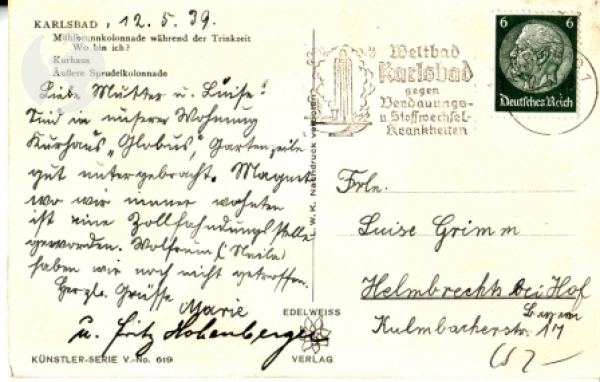 KARLSBAD , 12. 5. 39.
Mühlbrunnkolonnade während der Trinkzeit
Wo bin ich?
Kurhaus
Äußere Sprudelkolonnade
Liebe Mutter u. Luise!
Sind in unserer Wohnung
Kurhaus „Globus", Gartenzeile
gut untergebracht. Magnet
wo wir immer wohnten
ist eine Zollfahndungsstelle
geworden. Wolfrum (Naila)
haben wir noch nicht getroffen.
Herzl. Grüsse
Marie
u. Fritz Hohenberger
KÜNSTLER-SERIE V.-No. 619
L. W. K. Nachdruck verboten
EDELWEISS
VERLAG
Weltbad
Karlsbad
gegen
Verdauungs-
u. Stoffwechsel-
Krankheiten
6 6
Deutsches Reich
1
Frln.
Luise Grimm
Helmbrechts bei Hof
Bayern
Kulmbacherstr. 17